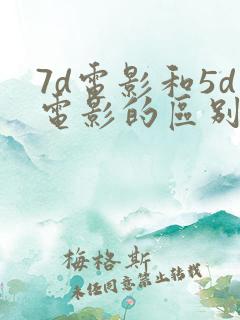 7d電影和5d
電影的區别
梅格斯
未经同意禁止转载